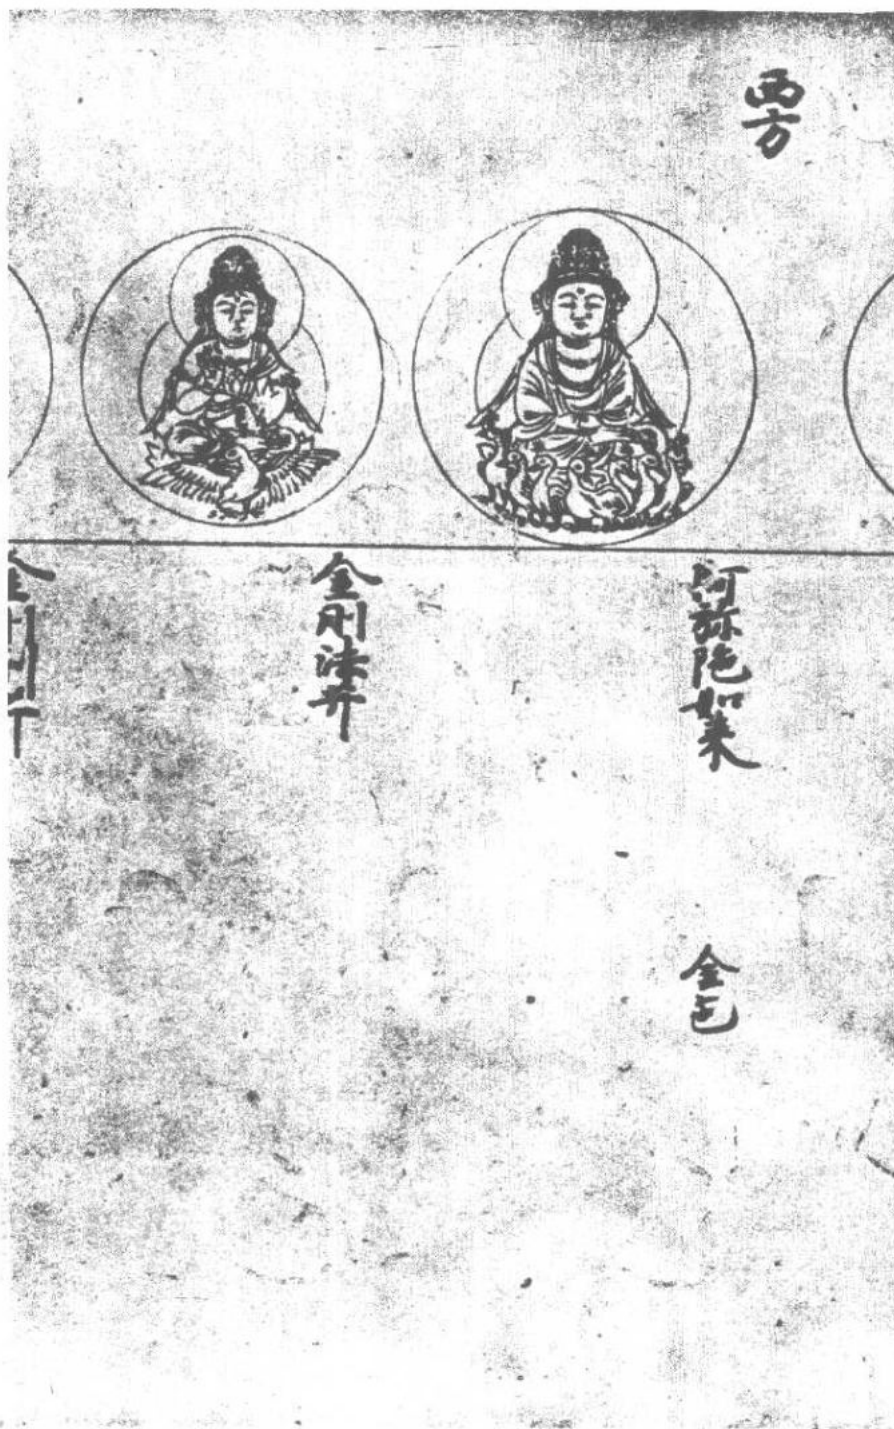 西方
阿弥陁如来
金色
金剛法并
金剛